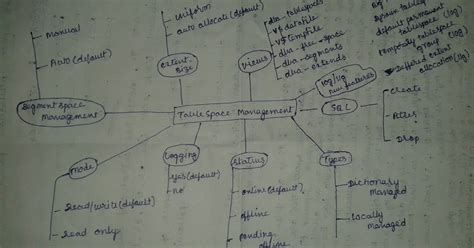 Manual
Auto (default)
Segment space
Management
uniform
auto allocate (default)
extent
size
dba - tablespaces
v$ datafile
v$ tempfile
dba - free - space
dba - segments
dba - extends
Views
default permanent
tablespace (10g)
temporary tablespace
group (10g)
Deffered extent
allocation (11g)
10g/11g
new features
Table Space Management
SQL
Create
Alter
Drop
mode
Read/write (default)
read only
logging
yes (default)
no
status
online (default)
offline
pending
offline
Types
Dictionary
Managed
Locally
Managed